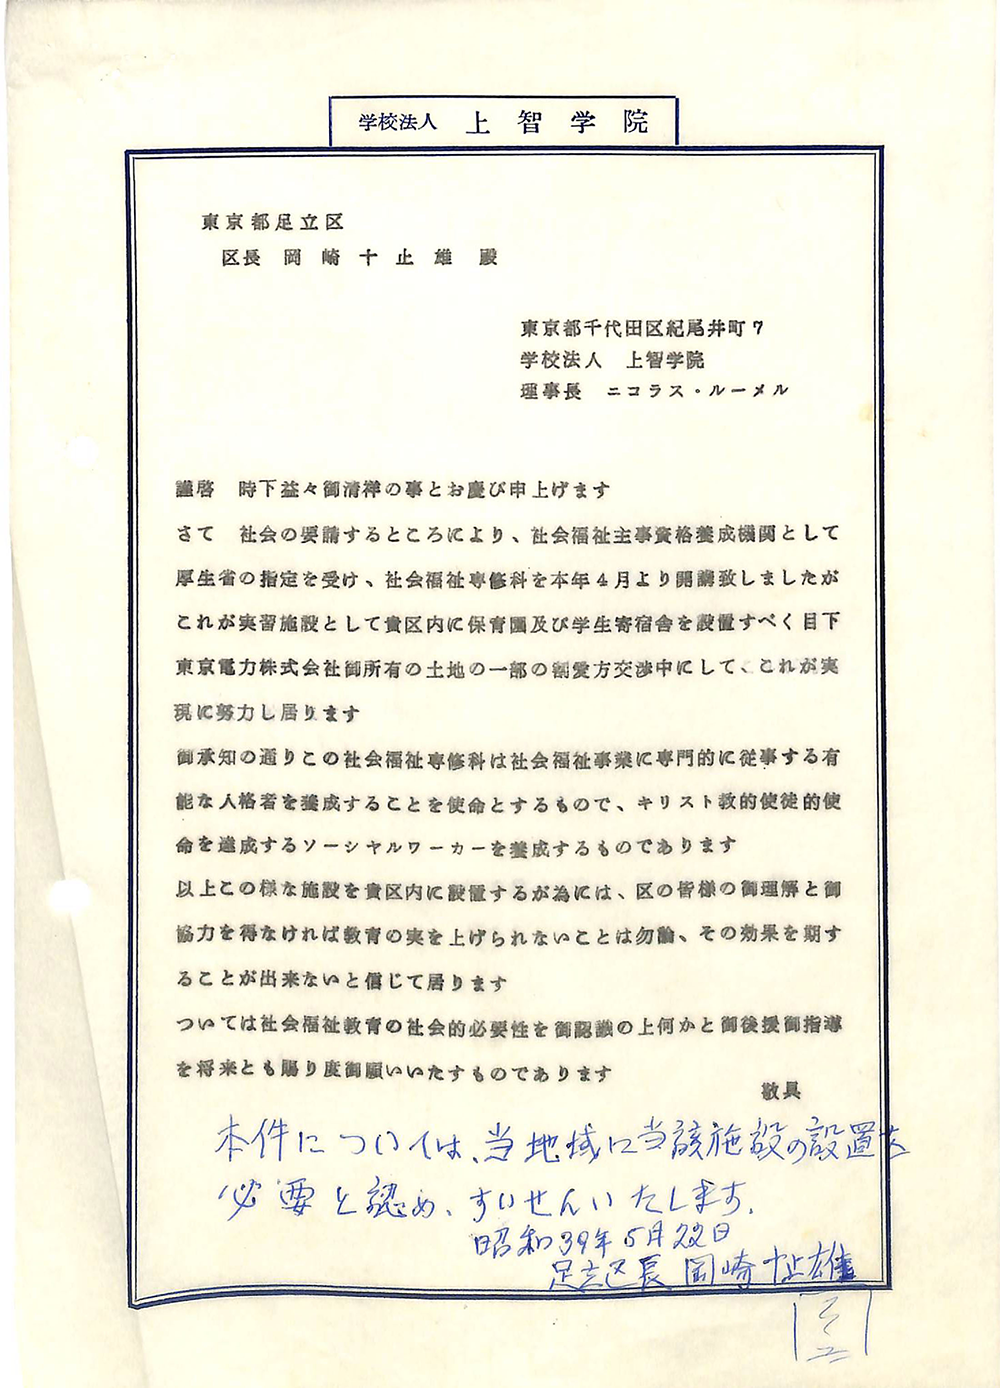 学校法人 上智学院
東京都足立区
区長 岡崎十止雄殿
東京都千代田区紀尾井町7
学校法人 上智学院
理事長 ニコラス・ルーメル
謹啓 時下益々御清祥の事とお慶び申上げます
さて 社会の要請するところにより、社会福祉主事資格養成機関として
厚生省の指定を受け、社会福祉専修科を本年4月より開講致しましたが
これが実習施設として貴区内に保育園及び学生寄宿舎を設置すべく目下
東京電力株式会社御所有の土地の一部の割愛方交渉中にして、これが実
現に努力し居ります
御承知の通りこの社会福祉専修科は社会福祉事業に専門的に従事する有
能な人格者を養成することを使命とするもので、キリスト教的使徒的使
命を達成するソーシヤルワーカーを養成するものであります
以上この様な施設を貴区内に設置するが為には、区の皆様の御理解と御
協力を得なければ教育の実を上げられないことは勿論、その効果を期す
ることが出来ないと信じて居ります
ついては社会福祉教育の社会的必要性を御認識の上何かと御後援御指導
を将来とも賜り度御願いいたすものであります
敬具
本件については、当地域に当該施設の設置を
必要と認め、すいせんいたします。
昭和39年5月22日
足立区長 岡崎十止雄